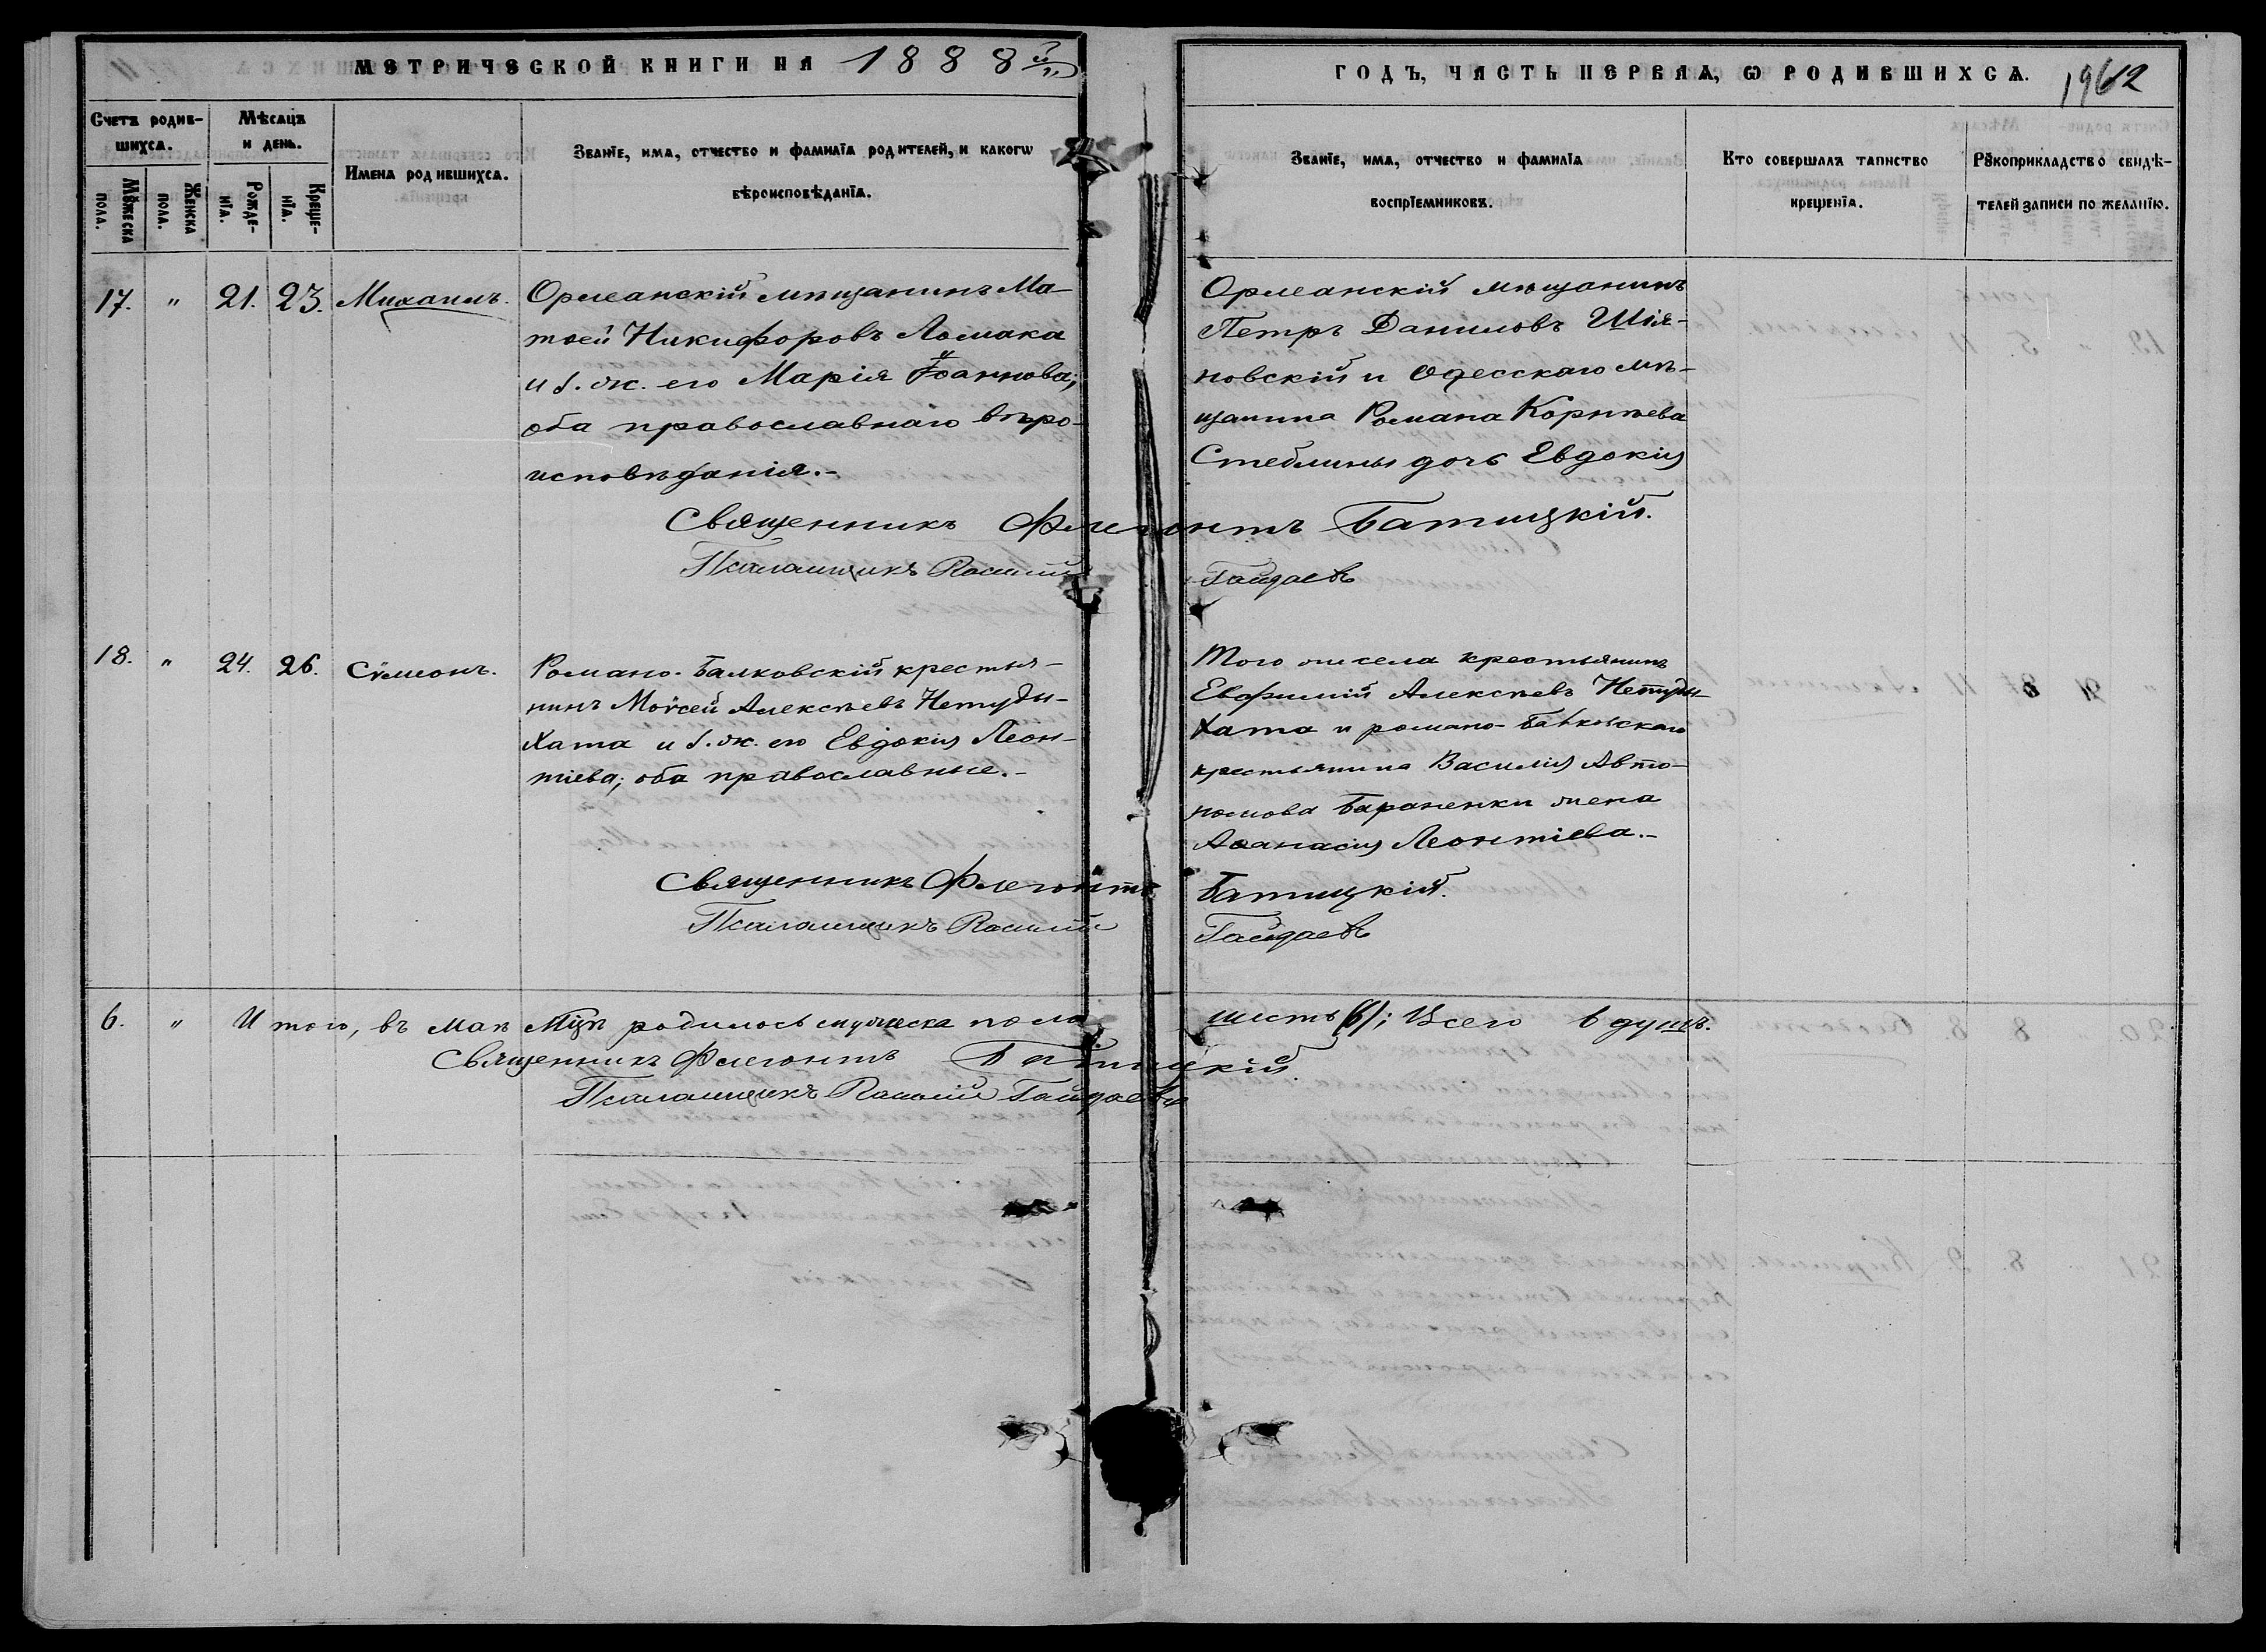 МЕТРИЧЕСКОЙ КНИГИ НА 1888й
ГОДЪ, ЧАСТЬ ПЕРВАЯ, Ѡ РОДИВШИХСѦ.
Счетъ родив-
шихсѧ.
Мѣсѧцъ
и день.
Мꙋжеска
пола.
Женска
пола.
Рожде-
нїѧ.
Креще-
нїѧ.
Имена родившихсѧ.
Званїе, имѧ, отчество и фамилїѧ родителей, и какогѡ
вѣроисповѣданїѧ.
Званїе, имѧ, отчество и фамилїѧ
воспрїемниковъ.
Кто совершалъ таинство
крещенїѧ.
Рꙋкоприкладство свидѣ-
телей записи по желанїю.
17. " 21. 23. Михаилъ.
Орлеанскій мѣщанинъ Ма-
твей Никифоровъ Ломака
и з. ж. его Марія Іоаннова;
оба православнаго вѣро-
исповѣданія.-
Орлеанскій мѣщанинъ
Петръ Даниловъ Шія-
новскій и Одесскаго мѣ-
щанина Романа Корнѣева
Стеблины дочь Евдокія
Священникъ Флегонтъ Батицкій.
Псаломщикъ Гайдаевъ
18. " 24. 26. Сѷмеонъ.
Романо-Балковскій крестья-
нинъ Моѷсей Алексѣевъ Нетуды-
Хата и з. ж. его Евдокія Леон-
тіева; оба православные.-
Того же села крестьянинъ
Евфимій Алексѣевъ Нетуды-
Хата и романо-Балковскаго
крестьянина Василія Авто-
номова Бараненки жена
Аѳанасія Леонтіева.-
Священникъ Флегонтъ Батицкій.
Псаломщикъ Гайдаевъ
6. " Итого, въ маѣ мцѣ родилось мужеска пола шесть (6); Всего 6 душъ.
Священникъ Флегонтъ Батицкій.
Псаломщикъ Гайдаевъ